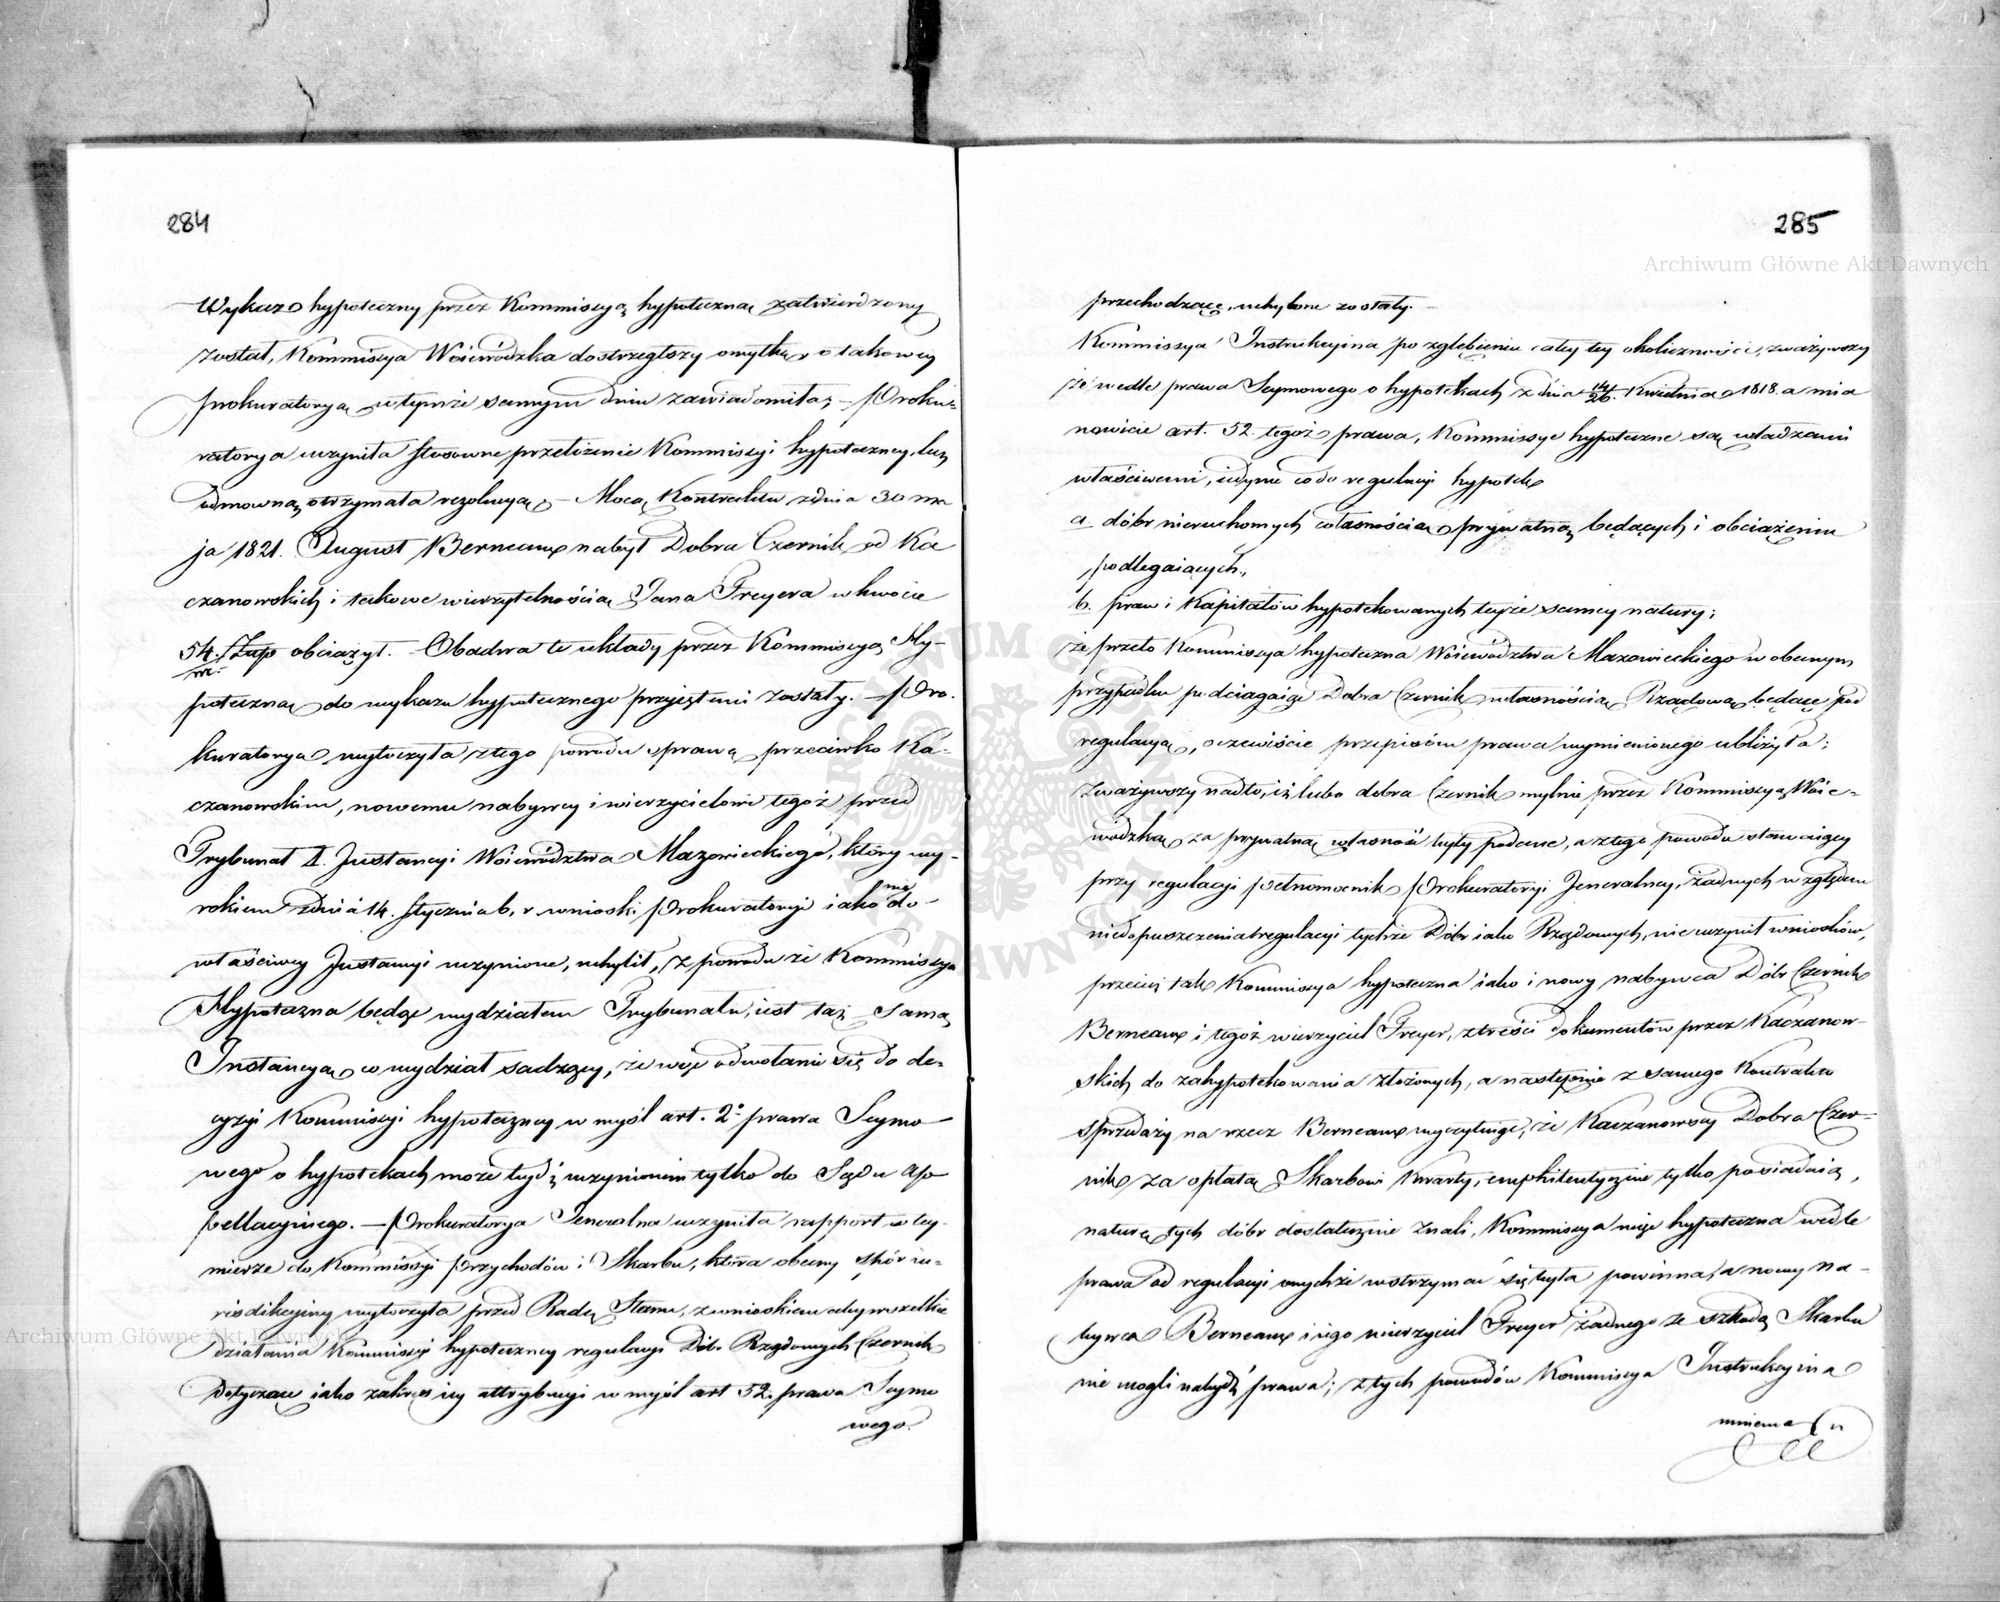 284
Wykaz hypoteczny przez Kommissyą hypoteczną zatwierdzony
został, Kommissya Woiewódzka dostrzegłszy omyłkę, o takowey
prokuratoryą w tymże samym dniu zawiadomiła; – Proku-
ratorya uczyniła stosowne przełożenie Kommissyi hypoteczney, lecz
odmowną otrzymała rezolucyą, – Mocą Kontraktu z dnia 30 ma
ja 1821. August Berneaux nabył Dobra Czernik od Ka
czanowskich i takowe wierzytelnością Jana Freyera w kwocie
54./m. Złtp obciążył. – Obadwa te układy przez Kommissyą Hy-
poteczną do wykazu hypotecznego przyjętemi zostały. – Pro-
kuratorya wytoczyła z tego powodu sprawę przeciwko Ka-
czanowskim, nowemu nabywcy i wierzycielowi tegoż przed
Trybunał I. Instancyi Woiewództwa Mazowieckiego, który wy-
rokiem z dnia 14. Stycznia b. r. wnioski Prokuratoryi iako nie do
właściwey Instancyi uczynione, uchylił, z powodu że Kommissya
Hypoteczna będąc wydziałem Trybunału, iest taż sama
Instancya co wydział sądzący, że więc odwołanie się do de-
cyzyi Kommissyi hypoteczney w myśl art. 2º prawa Seymo
wego o hypotekach może bydź uczynionem tylko do Sądu Ap
pellacyinego. – Prokuratorya Jeneralna uczyniła rapport w tey
mierze do Kommissyi Przychodów i Skarbu, która obecny spór iu-
risdikcyiny wytoczyła przed Radę Stanu, z wnioskiem aby wszelkie
działania Kommissyi hypoteczney regulacyi Dóbr Rządowych Czernik
dotyczące iako zakres iey attrybucyi w myśl art 52. prawa Seymo
wego
285
przechodzące, uchylone zostały. –
Kommissya Instrukcyina po zgłębieniu całey tey okoliczności, zważywszy
że wedle prawa Seymowego o hypotekach z dnia 14/26. Kwietnia 1818. a mia
nowicie art. 52. tegoż prawa, Kommissye hypoteczne są władzami
właściwemi, iedynie co do regulacyi hypotek
a. dóbr nieruchomych własnością prywatną będących i obciążeniu
podlegaiących.,
b. praw i Kapitałów hypotekowanych teyże samey natury;
że przeto Kommissya hypoteczna Woiewództwa Mazowieckiego w obecnym
przypadku podciągaiąc Dobra Czernik własnością Rządową będące pod
regulacyą, oczewiście przepisom prawa wymienionego ubliżyła;
Zważywszy nadto, iż lubo dobra Czernik mylnie przez Kommissyą Woie-
wódzką za prywatną własność były podane, a z tego powodu stawaiący
przy regulacyi pełnomocnik Prokuratoryi Jeneralney, żadnych względem
niedopuszczenia regulacyi tychże Dóbr iako Rządowych, nie uczynił wniosków,
przecież tak Kommissya hypoteczna iako i nowy nabywca Dóbr Czernik
Berneaux i tegoż wierzyciel Freyer, z treści dokumentów przez Kaczanow-
skich do zahypotekowania złożonych, a następnie z samego Kontraktu
sprzedaży na rzecz Berneaux wyczytuiąc, że Kaczanowscy Dobra Czer-
nik za opłatą Skarbowi Kwarty, emphiteutycznie tylko posiadaią,
naturę tych dóbr dostatecznie znali, Kommissya więc hypoteczna wedle
prawa od regulacyi onychże wstrzymać się była powinna, a nowy na-
bywca Berneaux i iego wierzyciel Freyer żadnego ze szkodą Skarbu
nie mogli nabydź prawa; z tych powodów Kommissya Instrukcyina
mniema
Archiwum Główne Akt Dawnych
Archiwum Główne Akt Dawnych